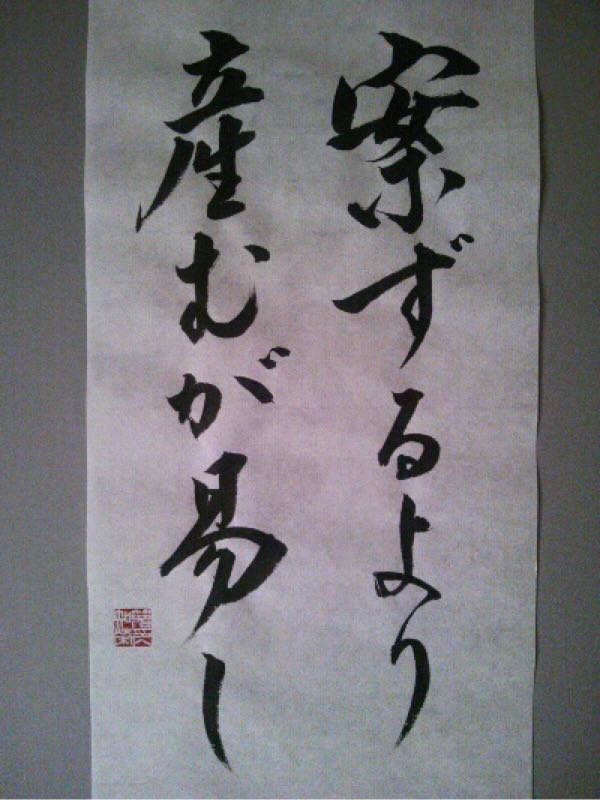 案ずるより
産むが易し